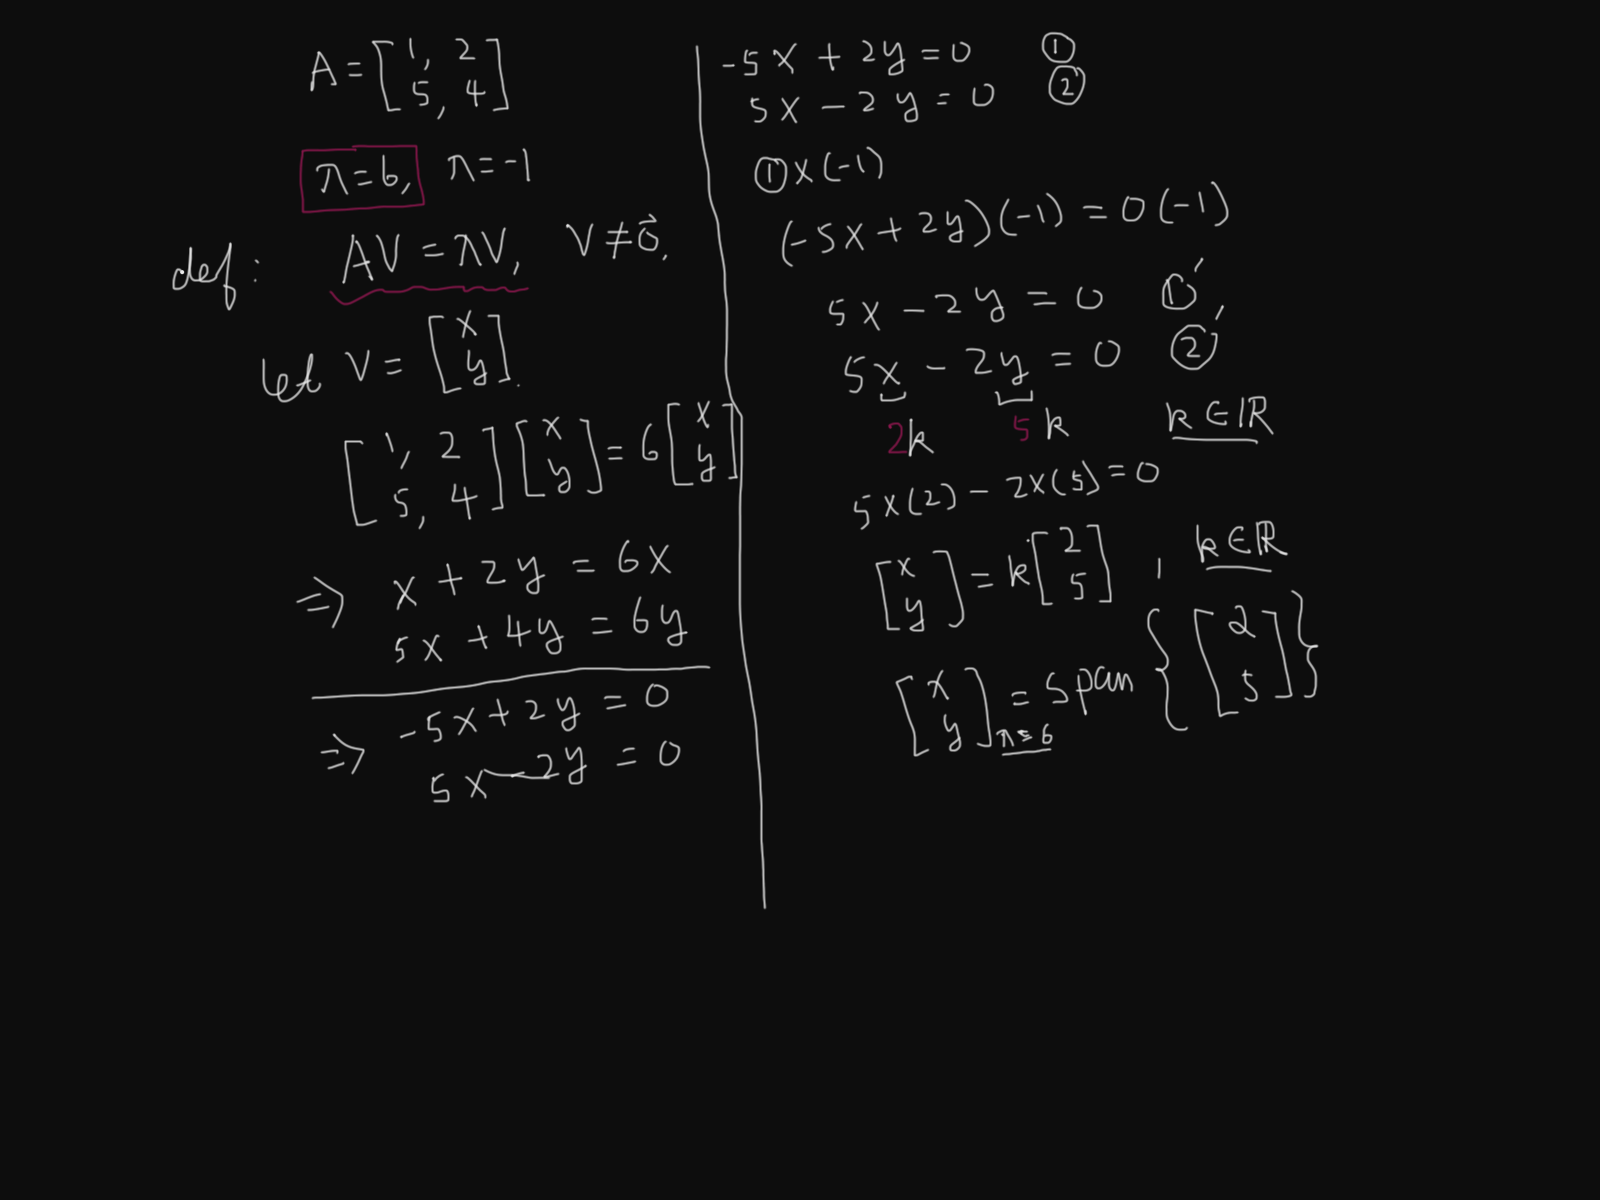 A = [1, 2
5, 4]
λ=6, λ=-1
def: AV = λV, V≠0⃗,
let V = [x
y].
[1, 2
5, 4] [x
y] = 6 [x
y]
⇒ x + 2y = 6x
5x + 4y = 6y
⇒ -5x + 2y = 0
5x - 2y = 0
-5x + 2y = 0 ①
5x - 2y = 0 ②
①x(-1)
(-5x + 2y)(-1) = 0(-1)
5x - 2y = 0 ①',
5x - 2y = 0 ②'
2k 5k k∈ℝ
5x(2) - 2x(5) = 0
[x
y] = k [2
5] , k∈ℝ
[x
y]λ=6 = Span {[2
5]}